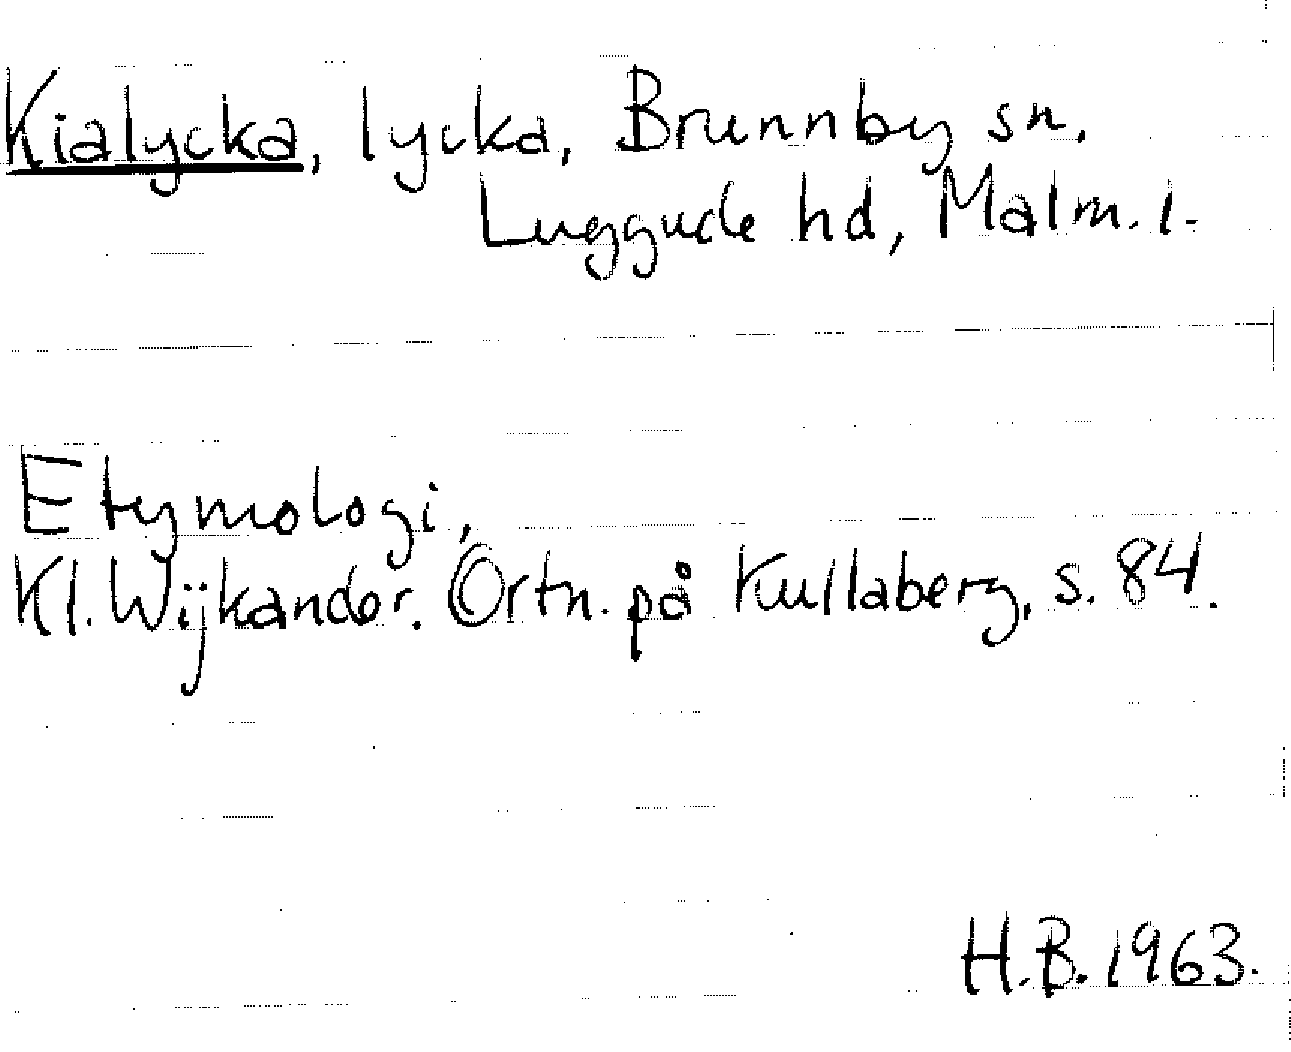 Kialycka, lycka, Brunnby sn.
Luggude hd, Malm. l.
Etymologi,
Kl. Wijkander. Ortn. på Kullaberg, s. 84.
H.B. 1963.